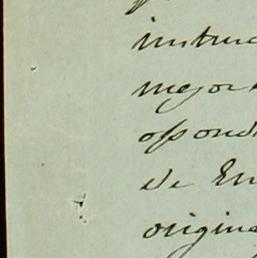 instruc
mejor
opond
de En
origina